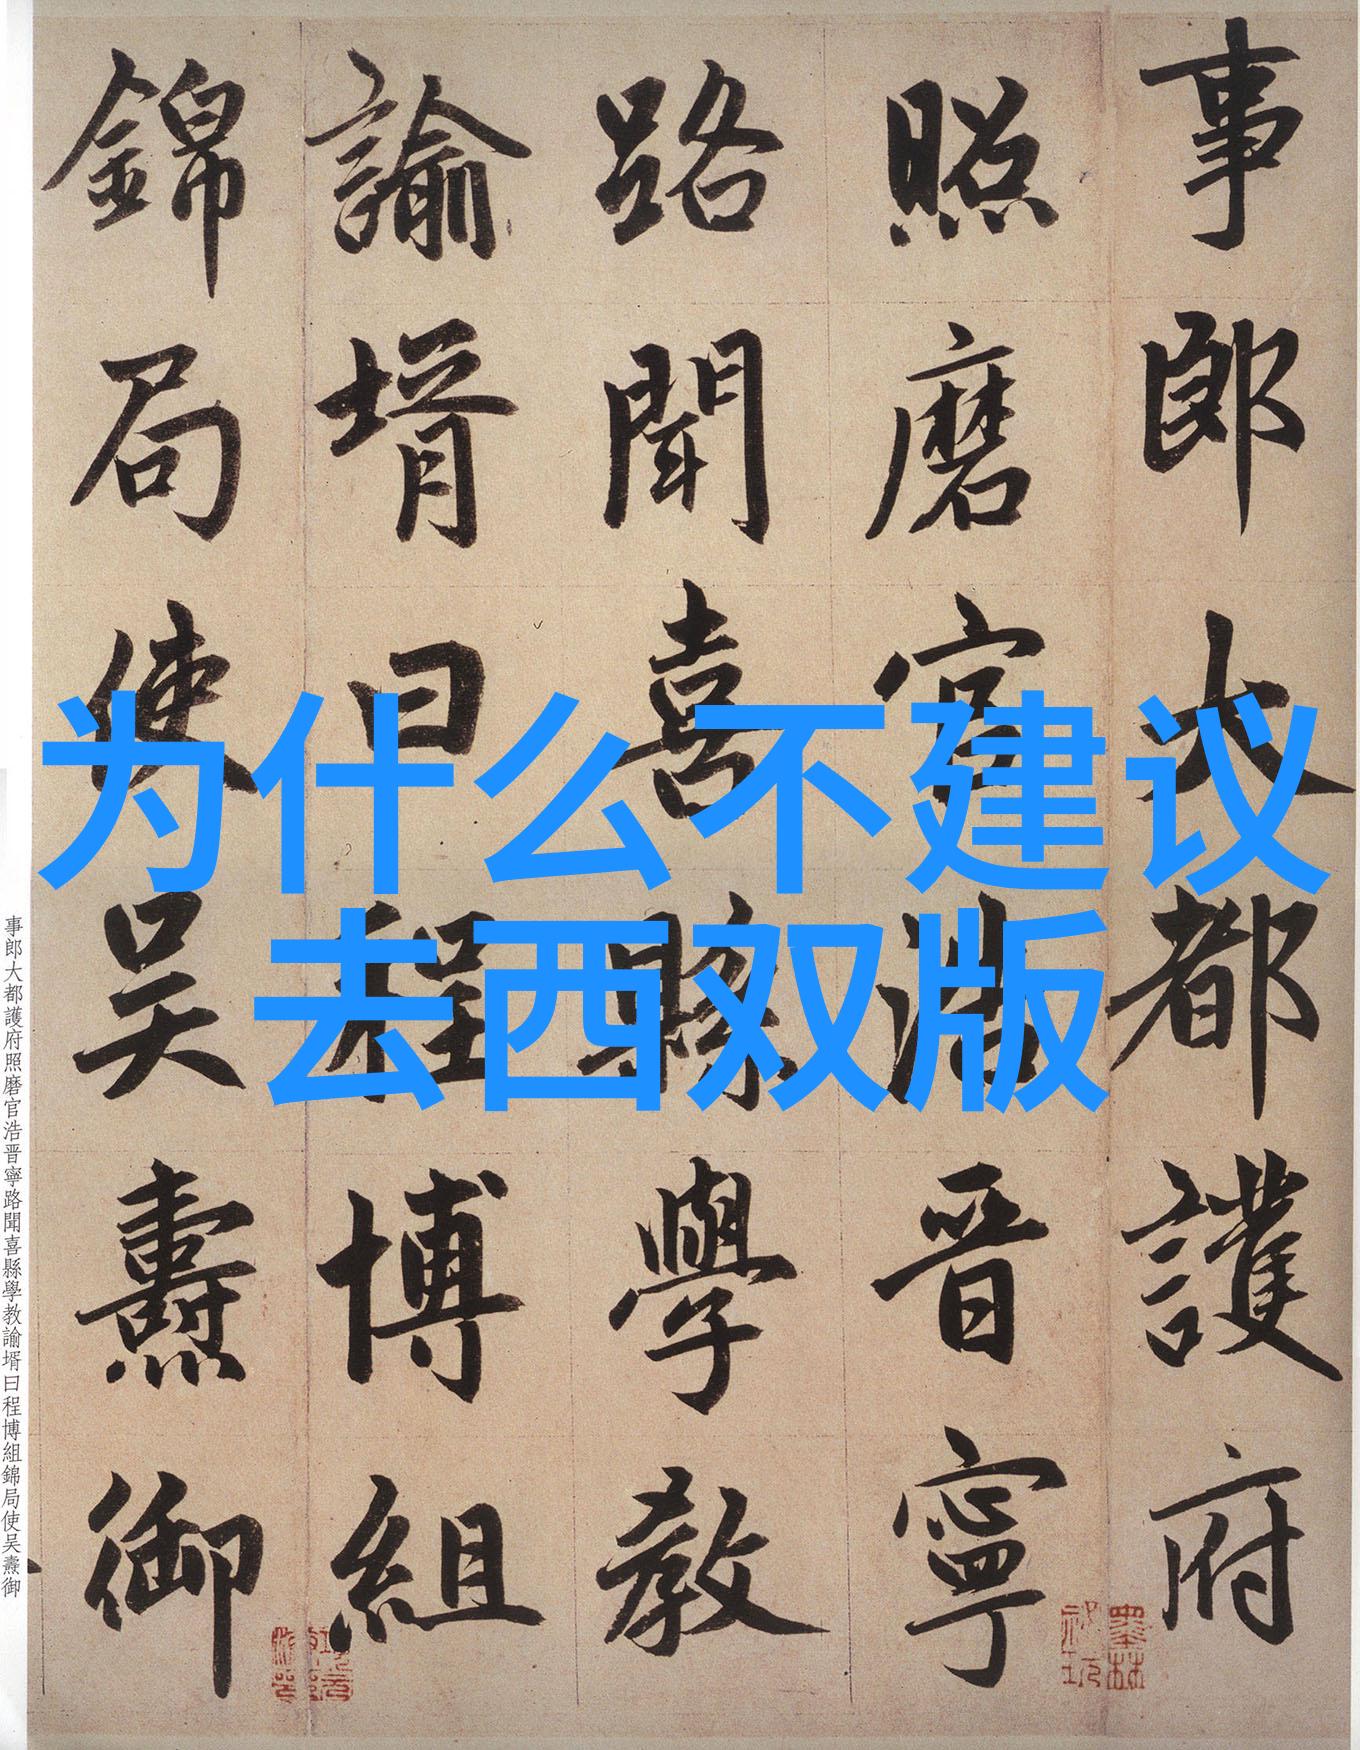 为什么不建议
去西双版
事郎大都護府
照磨官浩晋寧
路聞喜縣學教
諭壻曰程博組
錦局使吴燾御
事郎大都護府照磨官浩晋寧路聞喜縣學教諭壻曰程博組錦局使吴燾御